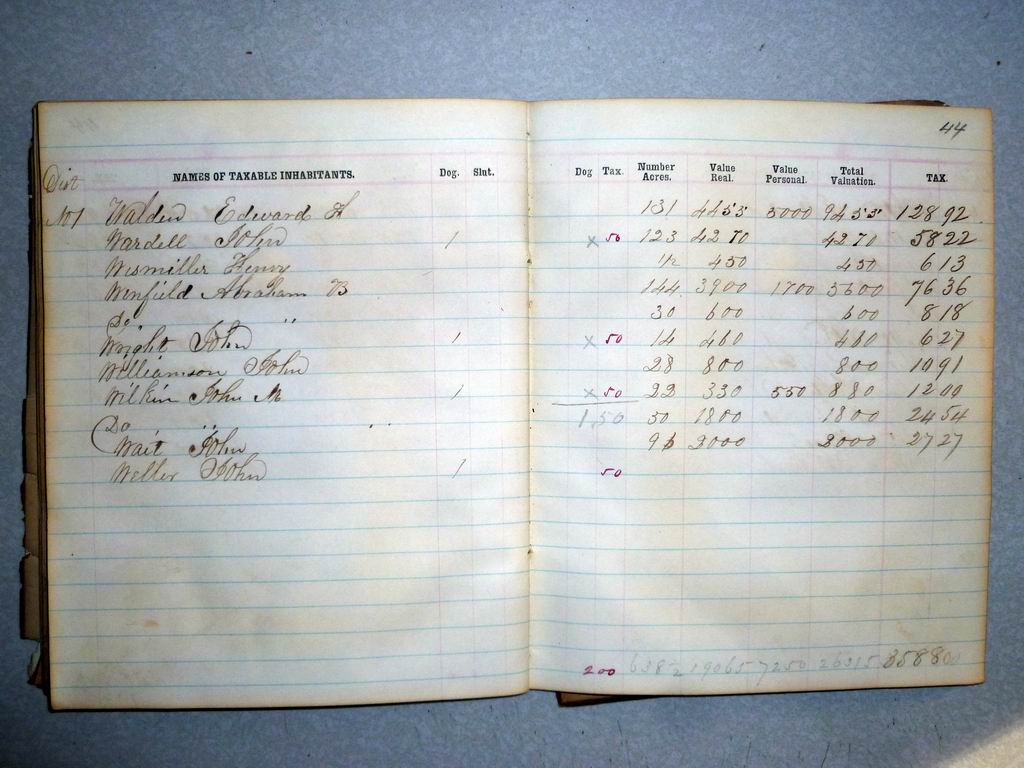 44
Dist NAMES OF TAXABLE INHABITANTS. Dog. Slut. Dog Tax. Number Acres. Value Real. Value Personal. Total Valuation. TAX.
No 1 Walden Edward H 131 4455 5000 9455 128 92
Wardell John 1 x 50 123 4270 4270 58 22
Henry 1/2 450 450 6 13
Winfield Abraham B 144 3900 1700 5600 76 36
Do " 30 600 600 8 18
Wright John 1 x 50 14 460 460 6 27
Williamson John 28 800 800 10 91
Wilkin John M 1 x 50 22 330 550 880 12 00
Do " " 1,50 50 1800 1800 24 54
Wait John 96 2000 2000 27 27
Weller John 1 50
200 638 1/2 19065 7250 26315 358 80